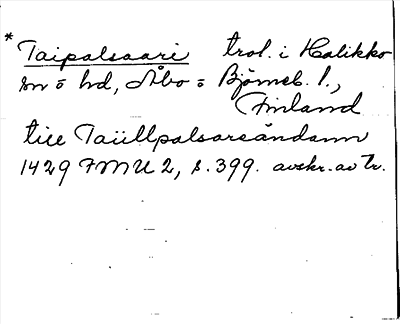 * Taipalsaari trol. i Halikko
sn o hd, Åbo o Björneb. l.,
Finland
tiil Taiillpalsaraändann
1429 FMU 2, s. 399. avskr. av tr.